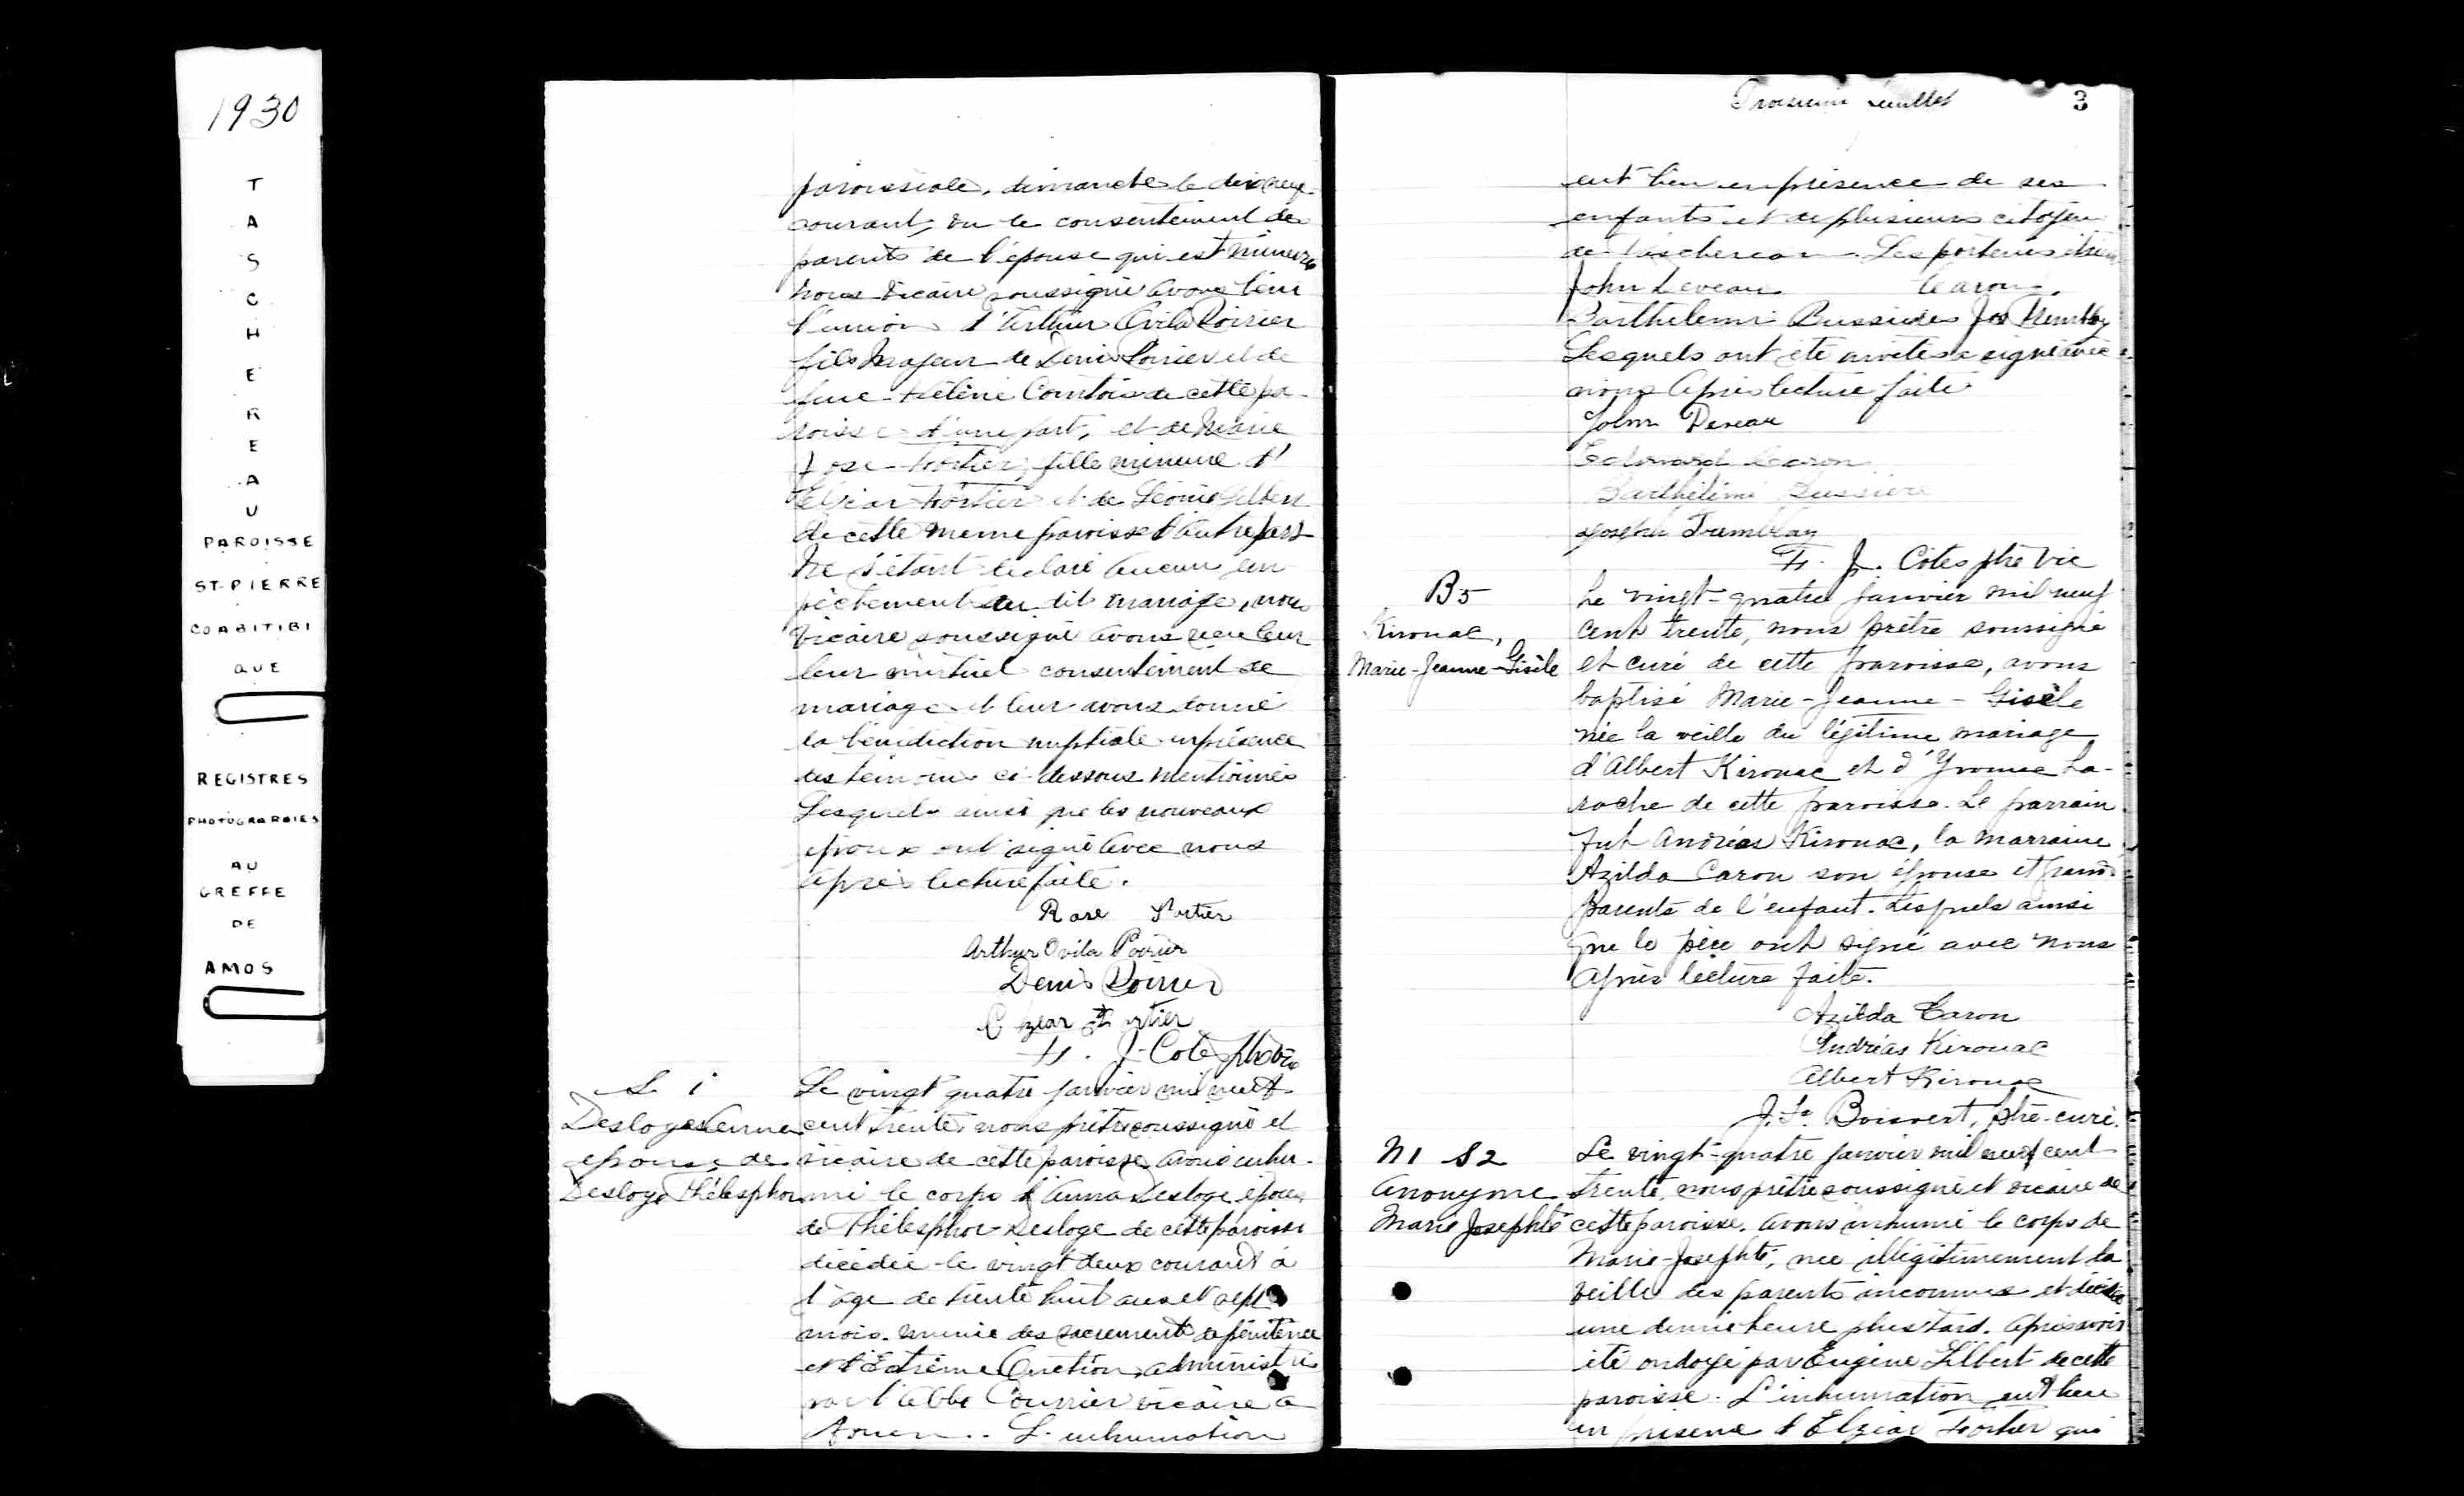 1930
TASCHEREAU
PAROISSE
ST-PIERRE
CO ABITIBI
QUE
REGISTRES
PHOTOGRAPHIES
AU
GREFFE
DE
AMOS
paroissiale, dimanche le dix neuf
courant, vu le consentement des
parents de l'épouse qui est mineure
nous vicaire soussigné avons béni
l'union d'Arthur Ovila Poirier
fils majeur de Denis Poirier et de
feue Hélène Comtois de cette pa-
roisse d'une part, et de Marie
Rose Fortier, fille mineure d'
Elzéar Fortier et de Léonie Gilbert
de cette même paroisse d'autre part
Ne s'étant déclaré aucun em
pêchement au dit mariage, nous
vicaire soussigné avons reçu leur
leur mutuel consentement de
mariage et leur avons donné
la bénédiction nuptiale en présence
des témoins ci-dessous mentionnés
Lesquels ainsi que les nouveaux
époux ont signé avec nous
après lecture faite.
Rose Fortier
Arthur Ovila Poirier
Denis Poirier
Elzear Fortier
J. Coté ptre vic
S 1
Desloges Anna
épouse de
Desloge Thélesphor
Le vingt quatre janvier mil neuf
cent trente, nous prêtre soussigné et
vicaire de cette paroisse avons inhu-
mé le corps d'Anna Desloge épouse
de Thélesphor Desloge de cette paroisse
décédée le vingt deux courant à
l'âge de trente huit ans et sept
mois. munie des sacrements de pénitence
et d'Extrême Onction, administrés
par l'abbé Cournier vicaire à
Rouen.. L'inhumation
Troisième feuillet 3
eut lieu en présence de ses
enfants et de plusieurs citoyens
de Taschereau. Les porteurs étaient
John Deveau Caron,
Barthélemi Bussières Jos Tremblay
Lesquels ont été invités à signé avec
nous après lecture faite
John Deveau
Edouard Caron
Barthélémi Bussière
Joseph Tremblay
J. Coté ptre vic
B5
Kirouac,
Marie-Jeanne-Gisèle
Le vingt-quatre janvier mil neuf
cent trente, nous prêtre soussigné
et curé de cette paroisse, avons
baptisé Marie-Jeanne-Gisèle
née la veille du légitime mariage
d'Albert Kirouac et d'Yvonne La-
roche de cette paroisse. Le parrain
fut Andréas Kirouac, la marraine
Azilda Caron son épouse et grands
parents de l'enfant. Lesquels ainsi
que le père ont signé avec nous
après lecture faite.
Azilda Caron
Andréas Kirouac
Albert Kirouac
J. Boisvert, ptre-curé.
N1 S2
Anonyme
Marie Josephte
Le vingt-quatre janvier mil neuf cent
trente, nous prêtre soussigné et vicaire de
cette paroisse. avons inhumé le corps de
Marie-Josephte, née illégitimement la
veille des parents inconnus et décédée
une demie heure plus tard. Après avoir
été ondoyé par Eugène Gilbert de cette
paroisse. L'inhumation eut lieu
en présence d'Elzéar Fortier qui